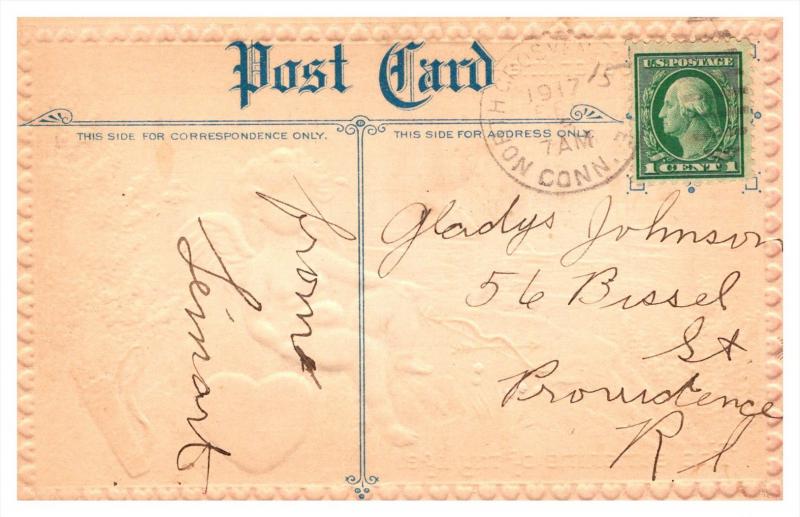 Post Card
THIS SIDE FOR CORRESPONDENCE ONLY.
THIS SIDE FOR ADDRESS ONLY.
NORTH GROSVEN
CONN.
1917
15
7 AM
U.S. POSTAGE
1 CENT 1
from
Gladys Johnson
56 Bissel
St.
Providence
R I